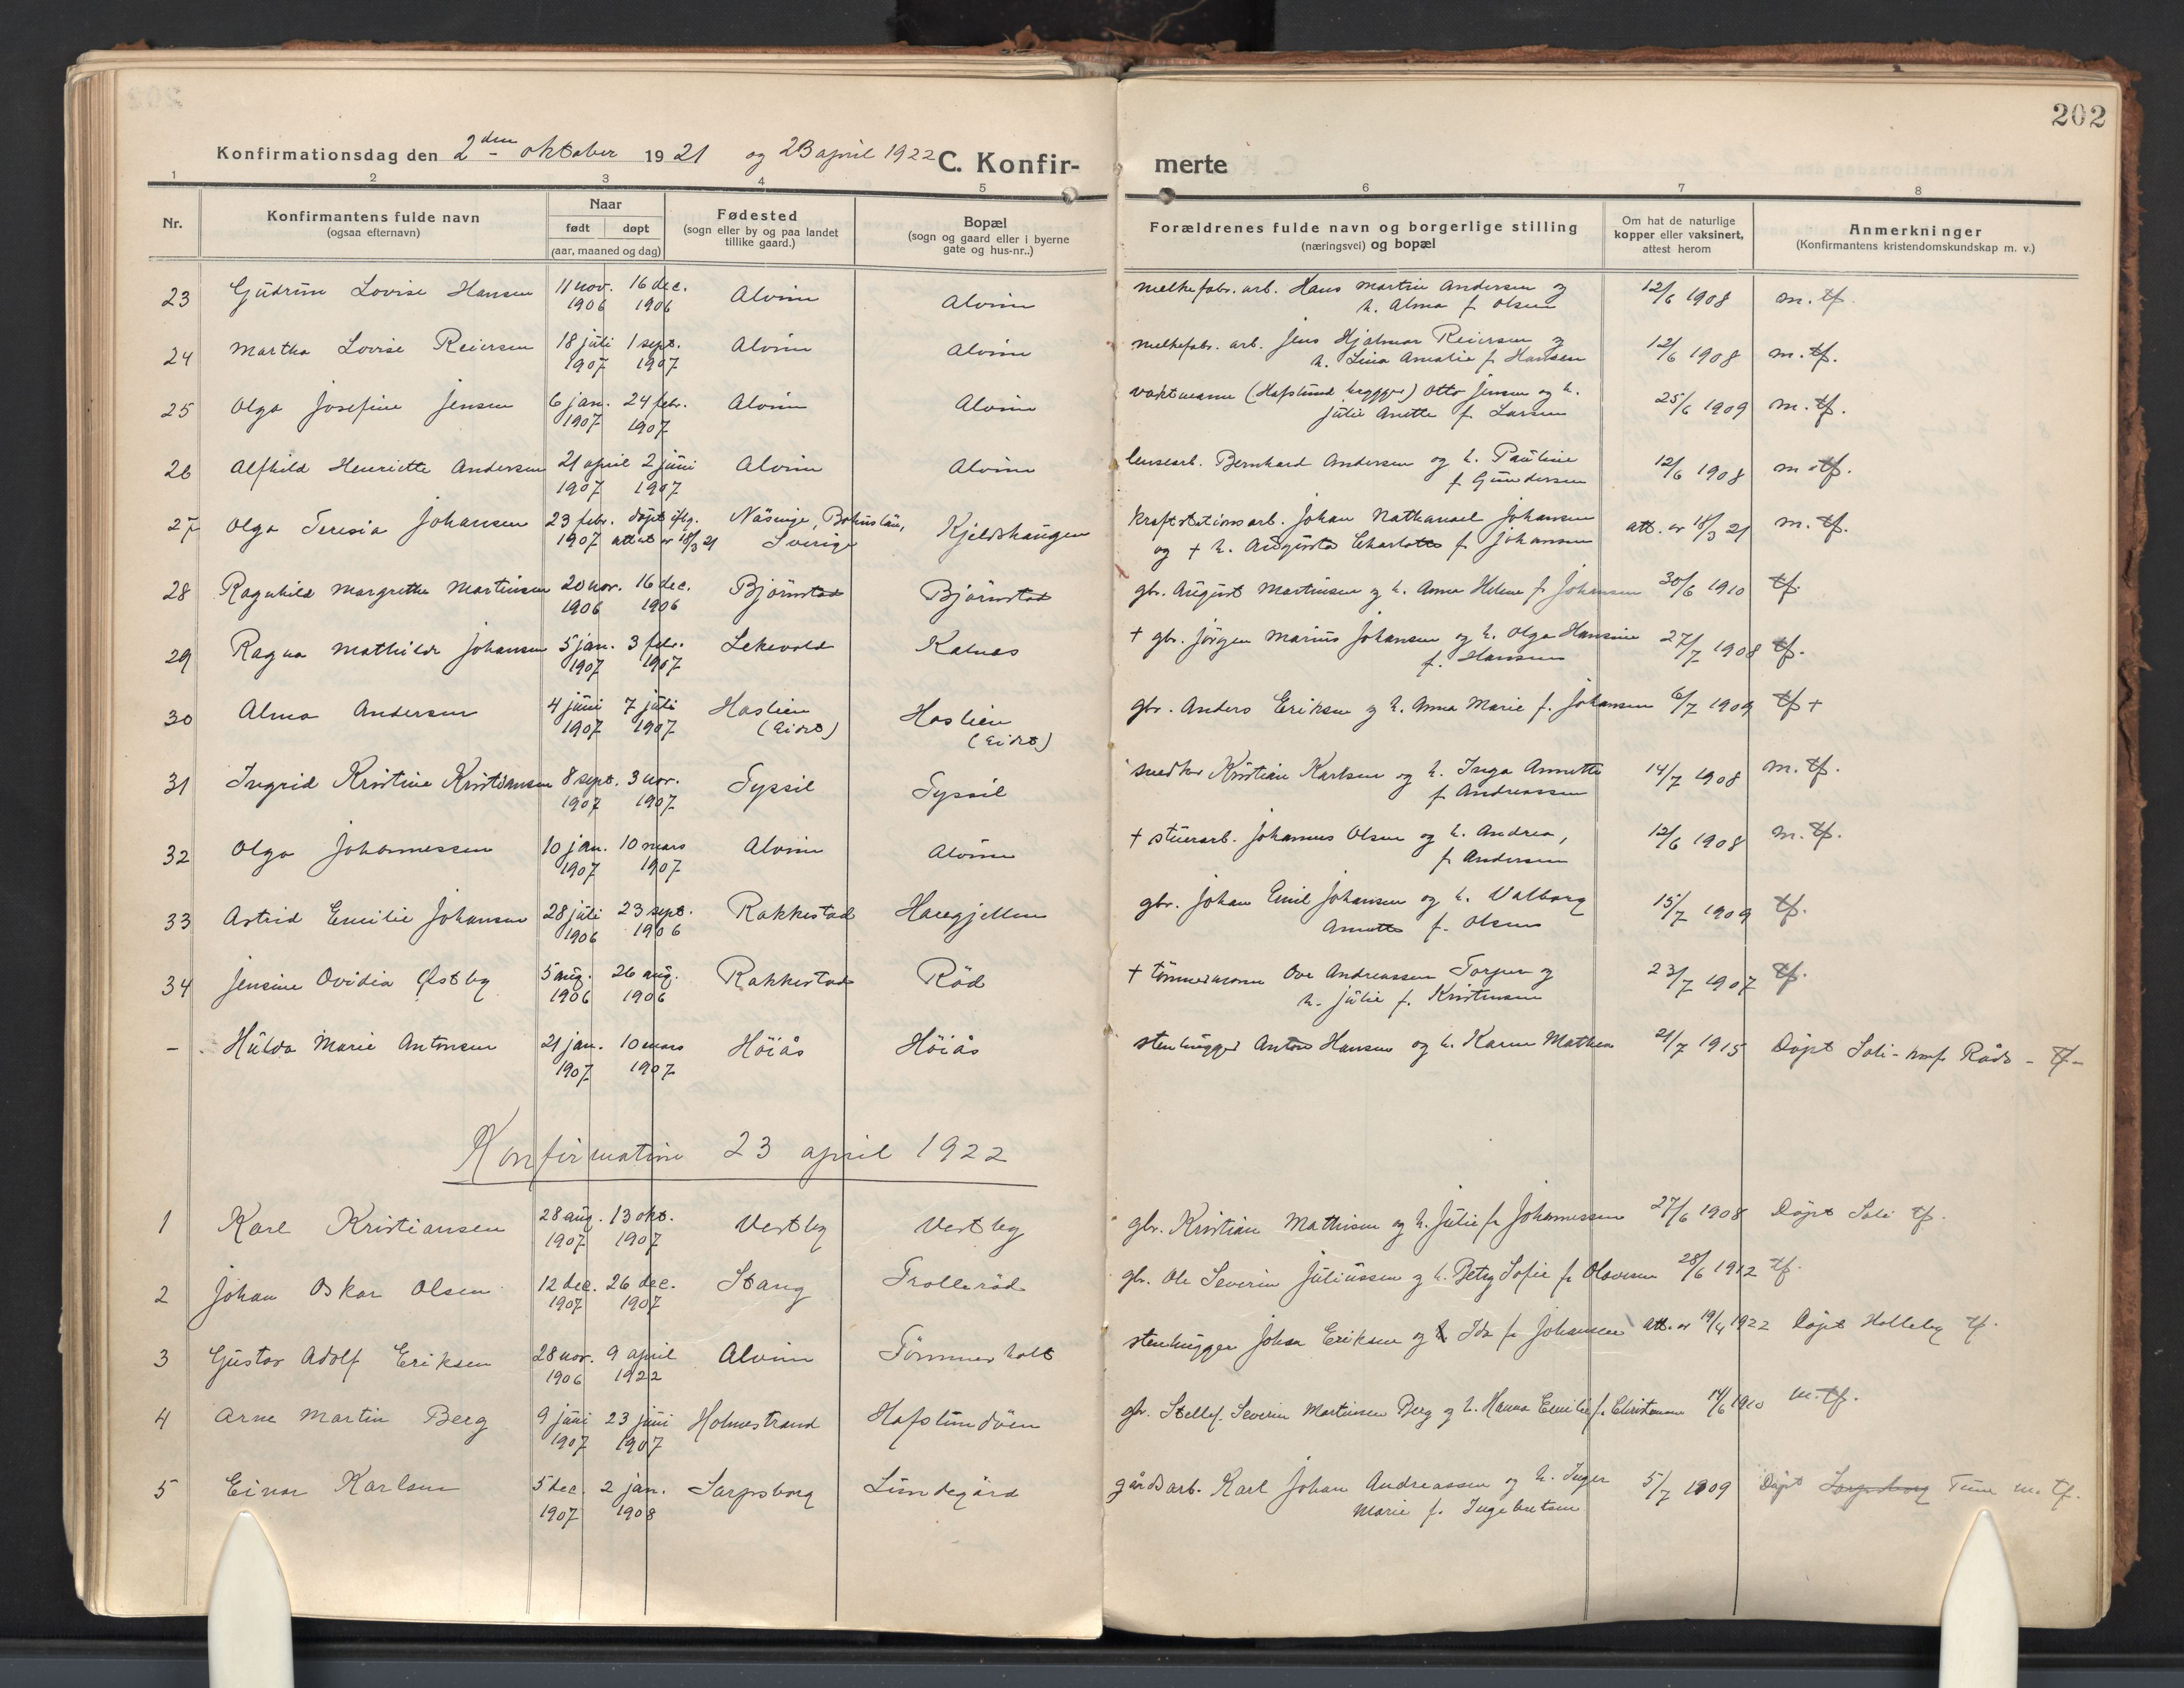 202
Konfirmationsdag den 2den oktober 1921 og 23 april 1922 C. Konfir- merte
1 2 3 4 5 6 7 8
Nr.
Konfirmantens fulde navn
(ogsaa efternavn)
Naar
født døpt
(aar, maaned og dag)
Fødested
(sogn eller by og paa landet
tillike gaard.)
Bopæl
(sogn og gaard eller i byerne
gate og hus-nr..)
Forældrenes fulde navn og borgerlige stilling
(næringsvei) og bopæl
Om hat de naturlige
kopper eller vaksinert,
attest herom
Anmerkninger
(Konfirmantens kristendomskundskap m. v.)
23 Gudrun Lovise Hansen 11 nov. 16 dec. Alvim Alvim melkefabr. arb. Hans Martin Andersen og 12/6 1908 m. tf.
1906 1906 h. Alma f. Olsen
24 Martha Lovise Reiersen 18 juli 1 sept. Alvim Alvim melkefabr. arb. Jens Hjalmar Reiersen og 12/6 1908 m. tf.
1907 1907 h. Lina Amalie f. Hansen
25 Olga Josefine Jensen 6 jan. 24 febr. Alvim Alvim vaktmann (Hafslund brygge) Otto Jensen og h. 25/6 1909 m. tf.
1907 1907 Julie Anette f. Larsen
26 Alfhild Henriette Andersen 21 april 2 juni Alvim Alvim lensearb. Bernhard Andersen og h. Pauline 12/6 1908 m. tf.
1907 1907 f. Gundersen
27 Olga Teresia Johansen 23 febr. døpt iflg. Näsinge, Bohuslän, Kjeldshaugen Kraftstationsarb. Johan Nathanael Johansen att. av 18/3 21 m. tf.
1907 attest av 18/3 21 Sverige og + h. Augusta Charlotte f. Johansen
28 Ragnhild Margrethe Martinsen 20 nov. 16 dec. Björnstad Björnstad gbr. August Martinsen og h. Anna Helene f. Johansen 30/6 1910 tf.
1906 1906
29 Ragna Mathilde Johansen 5 jan. 3 febr. Lekevold Kalnes + gbr. Jörgen Marius Johansen og h. Olga Hansine 27/7 1908 tf.
1907 1907 f. Hansen
30 Alma Andersen 4 juni 7 juli Haslien Haslien gbr. Anders Eriksen og h. Anna Marie f. Johansen 6/7 1909 tf +
1907 1907 (Eidet) (Eidet)
31 Ingrid Kristine Kristiansen 8 sept. 3 nov. Tyssil Tyssil snedker Kristian Karlsen og h. Inga Annette 14/7 1908 m. tf.
1907 1907 f. Andreassen
32 Olga Johannessen 10 jan. 10 mars Alvim Alvim + stuerarb. Johannes Olsen og h. Andrea, 12/6 1908 m. tf.
1907 1907 f. Andersen
33 Astrid Emilie Johansen 28 juli 23 sept. Rakkestad Haregjellen gbr. Johan Emil Johansen og h. Valborg 15/7 1909 tf.
1906 1906 Anette f. Olsen
34 Jensine Ovidia Østby 5 aug. 26 aug. Rakkestad Röd + tömmermann Ove Andreassen Torper og 23/7 1907 tf.
1906 1906 h. Julie f. Kristensen
- Hulda Marie Antonsen 21 jan. 10 mars Höiås Höiås stenhugger Anton Hansen og h. Karen Mathea 21/7 1915 Döpt Soli - konf. Råde - tf -
1907 1907
Konfirmation 23 april 1922
1 Karl Kristiansen 28 aug. 13 okt. Vestby Vestby gbr. Kristian Mathisen og h. Julie f. Johannessen 27/6 1908 Döpt Soli tf.
1907 1907
2 Johan Oskar Olsen 12 dec. 26 dec. Stang Trolleröd gbr. Ole Severin Juliussen og h. Betzy Sofie f. Olavesen 28/6 1912 tf.
1907 1907
3 Gustav Adolf Eriksen 28 nov. 9 april Alvim Tömmerholt stenhugger Johan Eriksen og h Ida f. Johansen att. av 19/4 1922 Döpt Holleby tf.
1906 1922
4 Arne Martin Berg 9 juni 23 juni Holmestrand Hafslundöen gbr. Stellef. Severin Martinsen Berg og h. Hanna Emilie f. Christensen 14/6 1910 m. tf.
1907 1907
5 Einar Karlsen 5 dec. 2 jan. Sarpsborg Lundegård gårdsarb. Karl Johan Andreassen og h. Inger 5/7 1909 Döpt Sarpsborg Tune m. tf.
1907 1908 Marie f. Ingebretsen